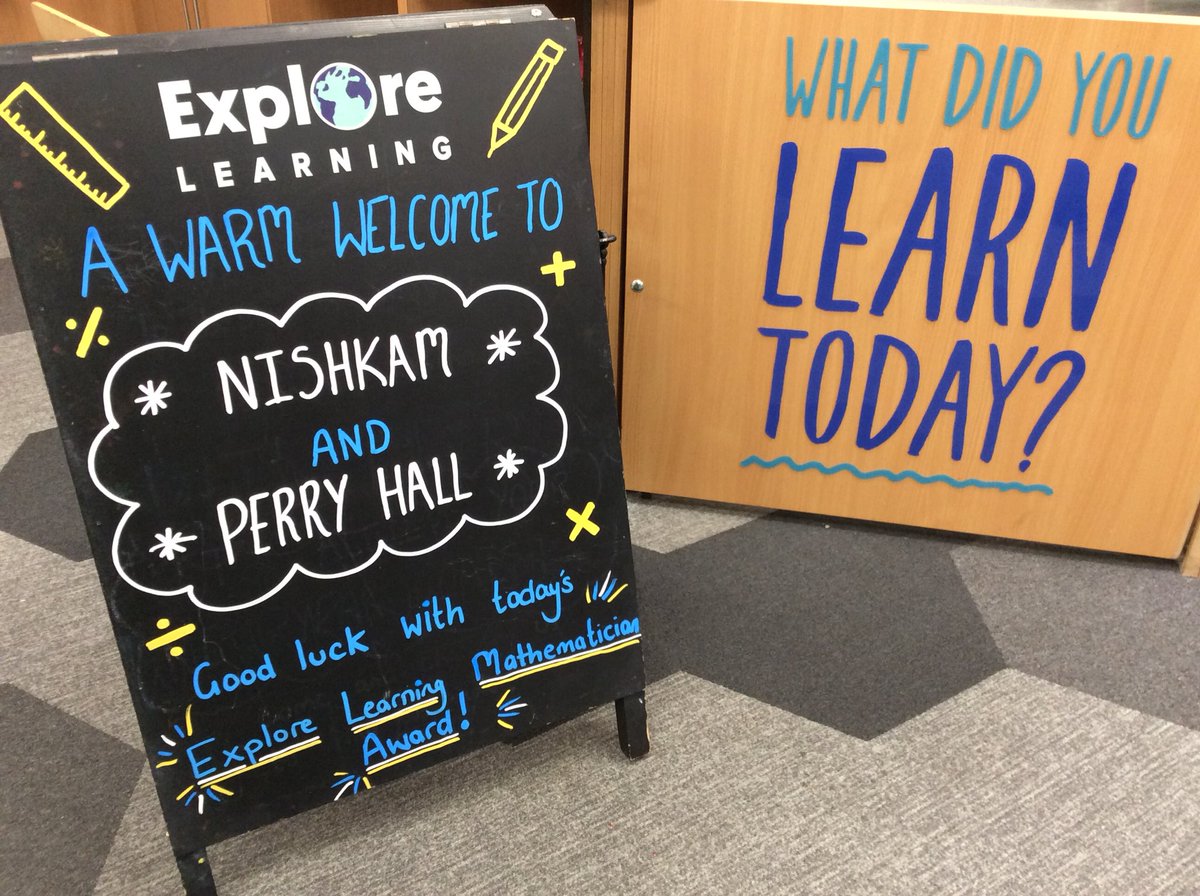 Explore
LEARNING
A WARM WELCOME TO
NISHKAM
AND
PERRY HALL
Good luck with today's
Explore Learning Mathematician
Award!
WHAT DID YOU
LEARN
TODAY?